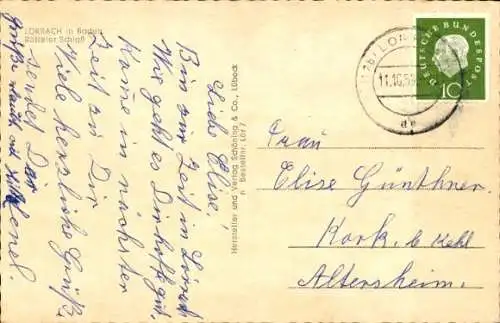 LÖRRACH in Baden
Röttler Schloß
Liebe Elise!
Bin zur Zeit in Lörrach
Wie geht es Dir hoffe gut.
Komme in nächster
Zeit zu Dir
Viele herzliche Grüße
sendet Dir
Lenel.
Grüße auch mit
Hersteller und Verlag Schöning & Co., Lübeck
n Bestellnr. Lör 7
LÖR
11.10.59
DEUTSCHE BUNDESPOST
10
Frau
Elise Günthner
Kork b. Kehl
Altersheim.